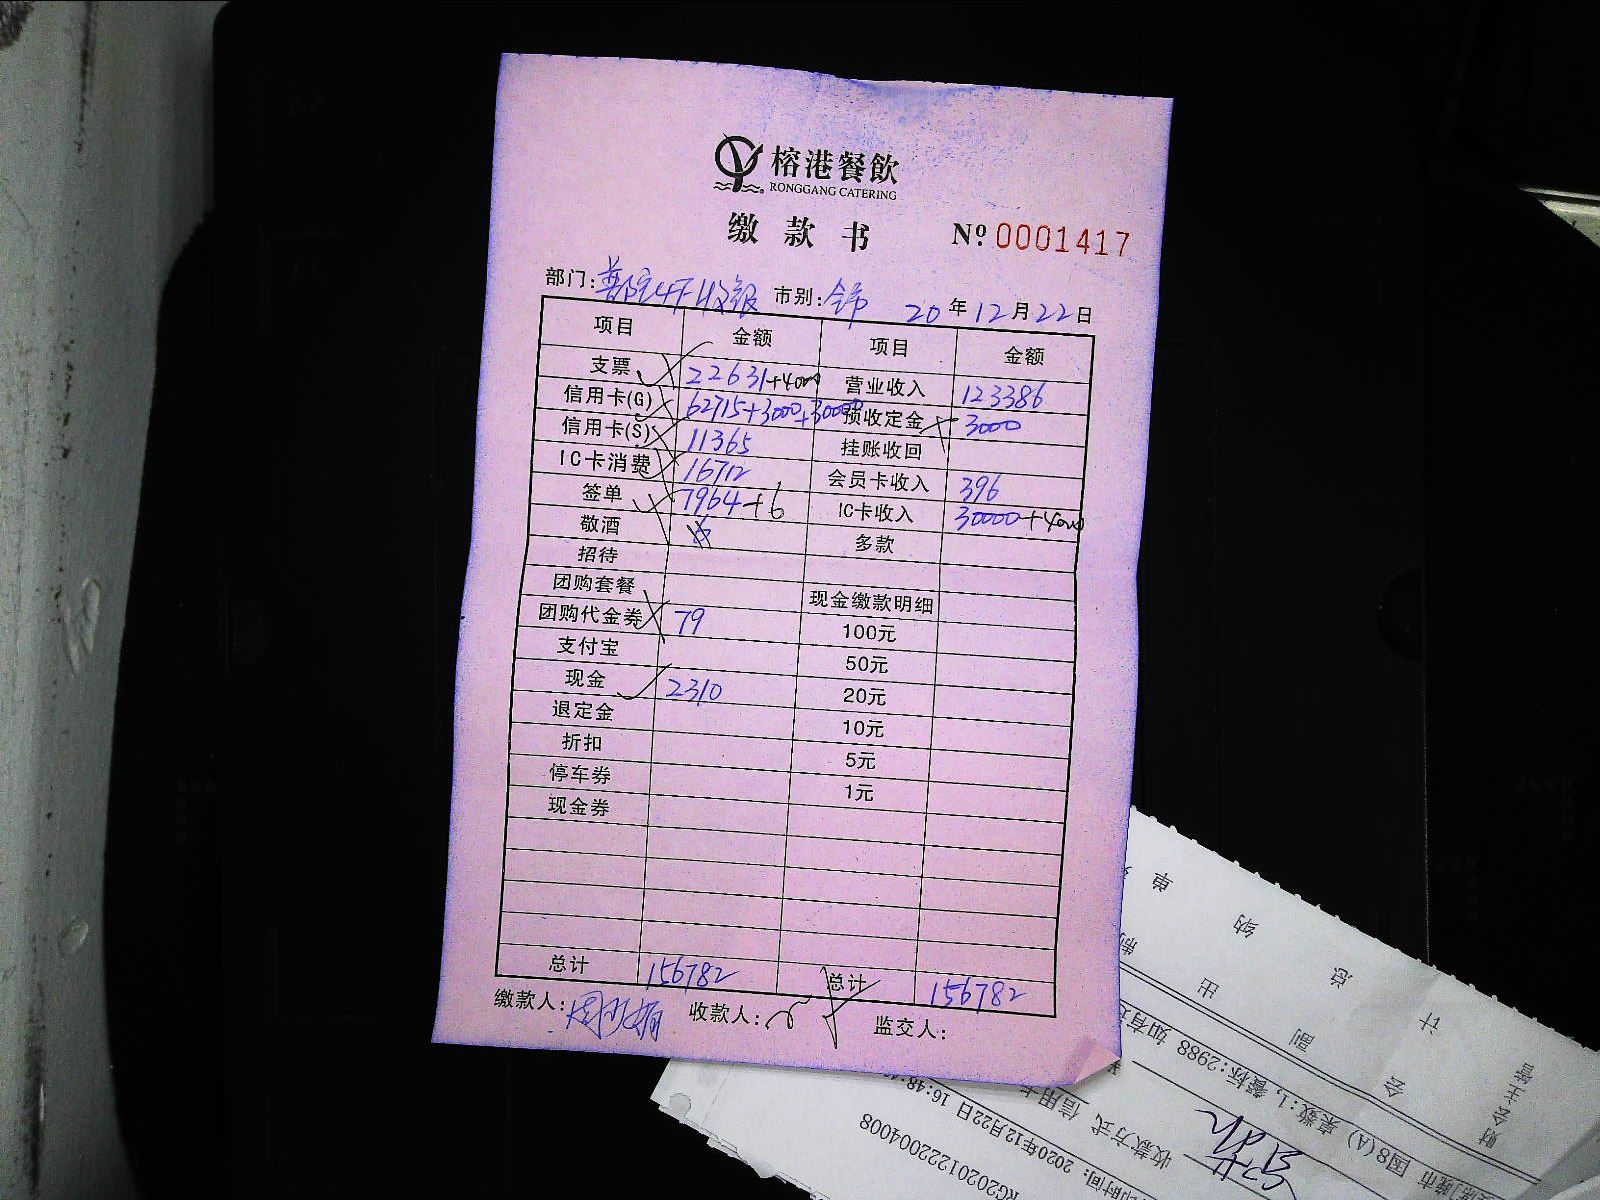 榕港餐飲
RONGGANG CATERING
缴款书 Nº 0001417
部门: 4F收银 市别: 20年12月22日
项目 金额 项目 金额
支票 22631+4000 营业收入 123386
信用卡(G) 62715+3000+30000 预收定金 3000
信用卡(S) 11365 挂账收回
IC卡消费 16712 会员卡收入 396
签单 7964+6 IC卡收入 30000+4000
敬酒 6 多款
招待
团购套餐 现金缴款明细
团购代金券 79 100元
支付宝 50元
现金 2310 20元
退定金 10元
折扣 5元
停车券 1元
现金券
总计 156782 总计 156782
缴款人: 收款人: 监交人:
单
纳
总
制
出
计
副
会
财会主管
国8(A) 桌数:1, 餐标:2988 如有
收款方式 信用卡
印时间: 2020年12月22日 16:48:4
RG20201222004008